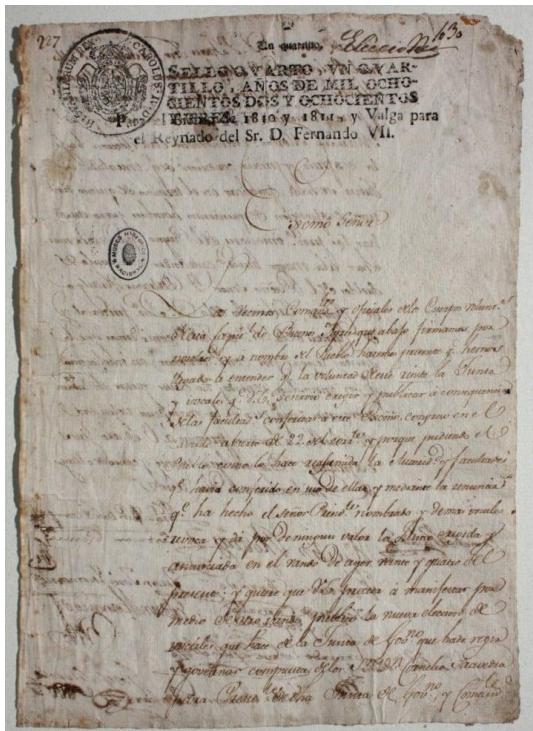 227
1630
Un quartillo.
SELLO QVARTO, VN QVAR-
TILLO, AÑOS DE MIL OCHO-
CIENTOS DOS Y OCHOCIENTOS
TRES.
1810 y 1811, y Valga para
el Reynado del Sr. D. Fernando VII.
CAROLUS IV D
MUSEO HISTORICO NACIONAL
Exmo Señor
vecinos, Comand.tes y oficiales de los Cuerpos
de Buenos Ayres que abajo firmamos por
y a nombre del Pueblo hacemos presente q.e hemos
llegado a entender q.e la voluntad de este resiste la Junta
y vocales q.e V.E. se sirvió erigir y publicar a consequencia
de las facultad.s conferidas a este Exmo. en el
abierto de 22 del y porque pudiendo el
Pueblo como lo hace reasumida la y facultades
q.e havia conferido, en uso de ellas, y mediante la renuncia
q.e ha hecho el señor Presid.te nombrado y demas vocales
revoca y da por de ningun valor la Junta erigida y
anunciada en el vando de ayer veinte y quatro del
presente; y quiere que V.E. proceda a manifestar por
medio de otro vando publico la nueva eleccion de
vocales que hace de la Junta de Gov.no que ha de regir
y governar compuesta de los S.res D.n Cornelio Saavedra
para Presid.te de dha Junta de Gov.no y Comand.te